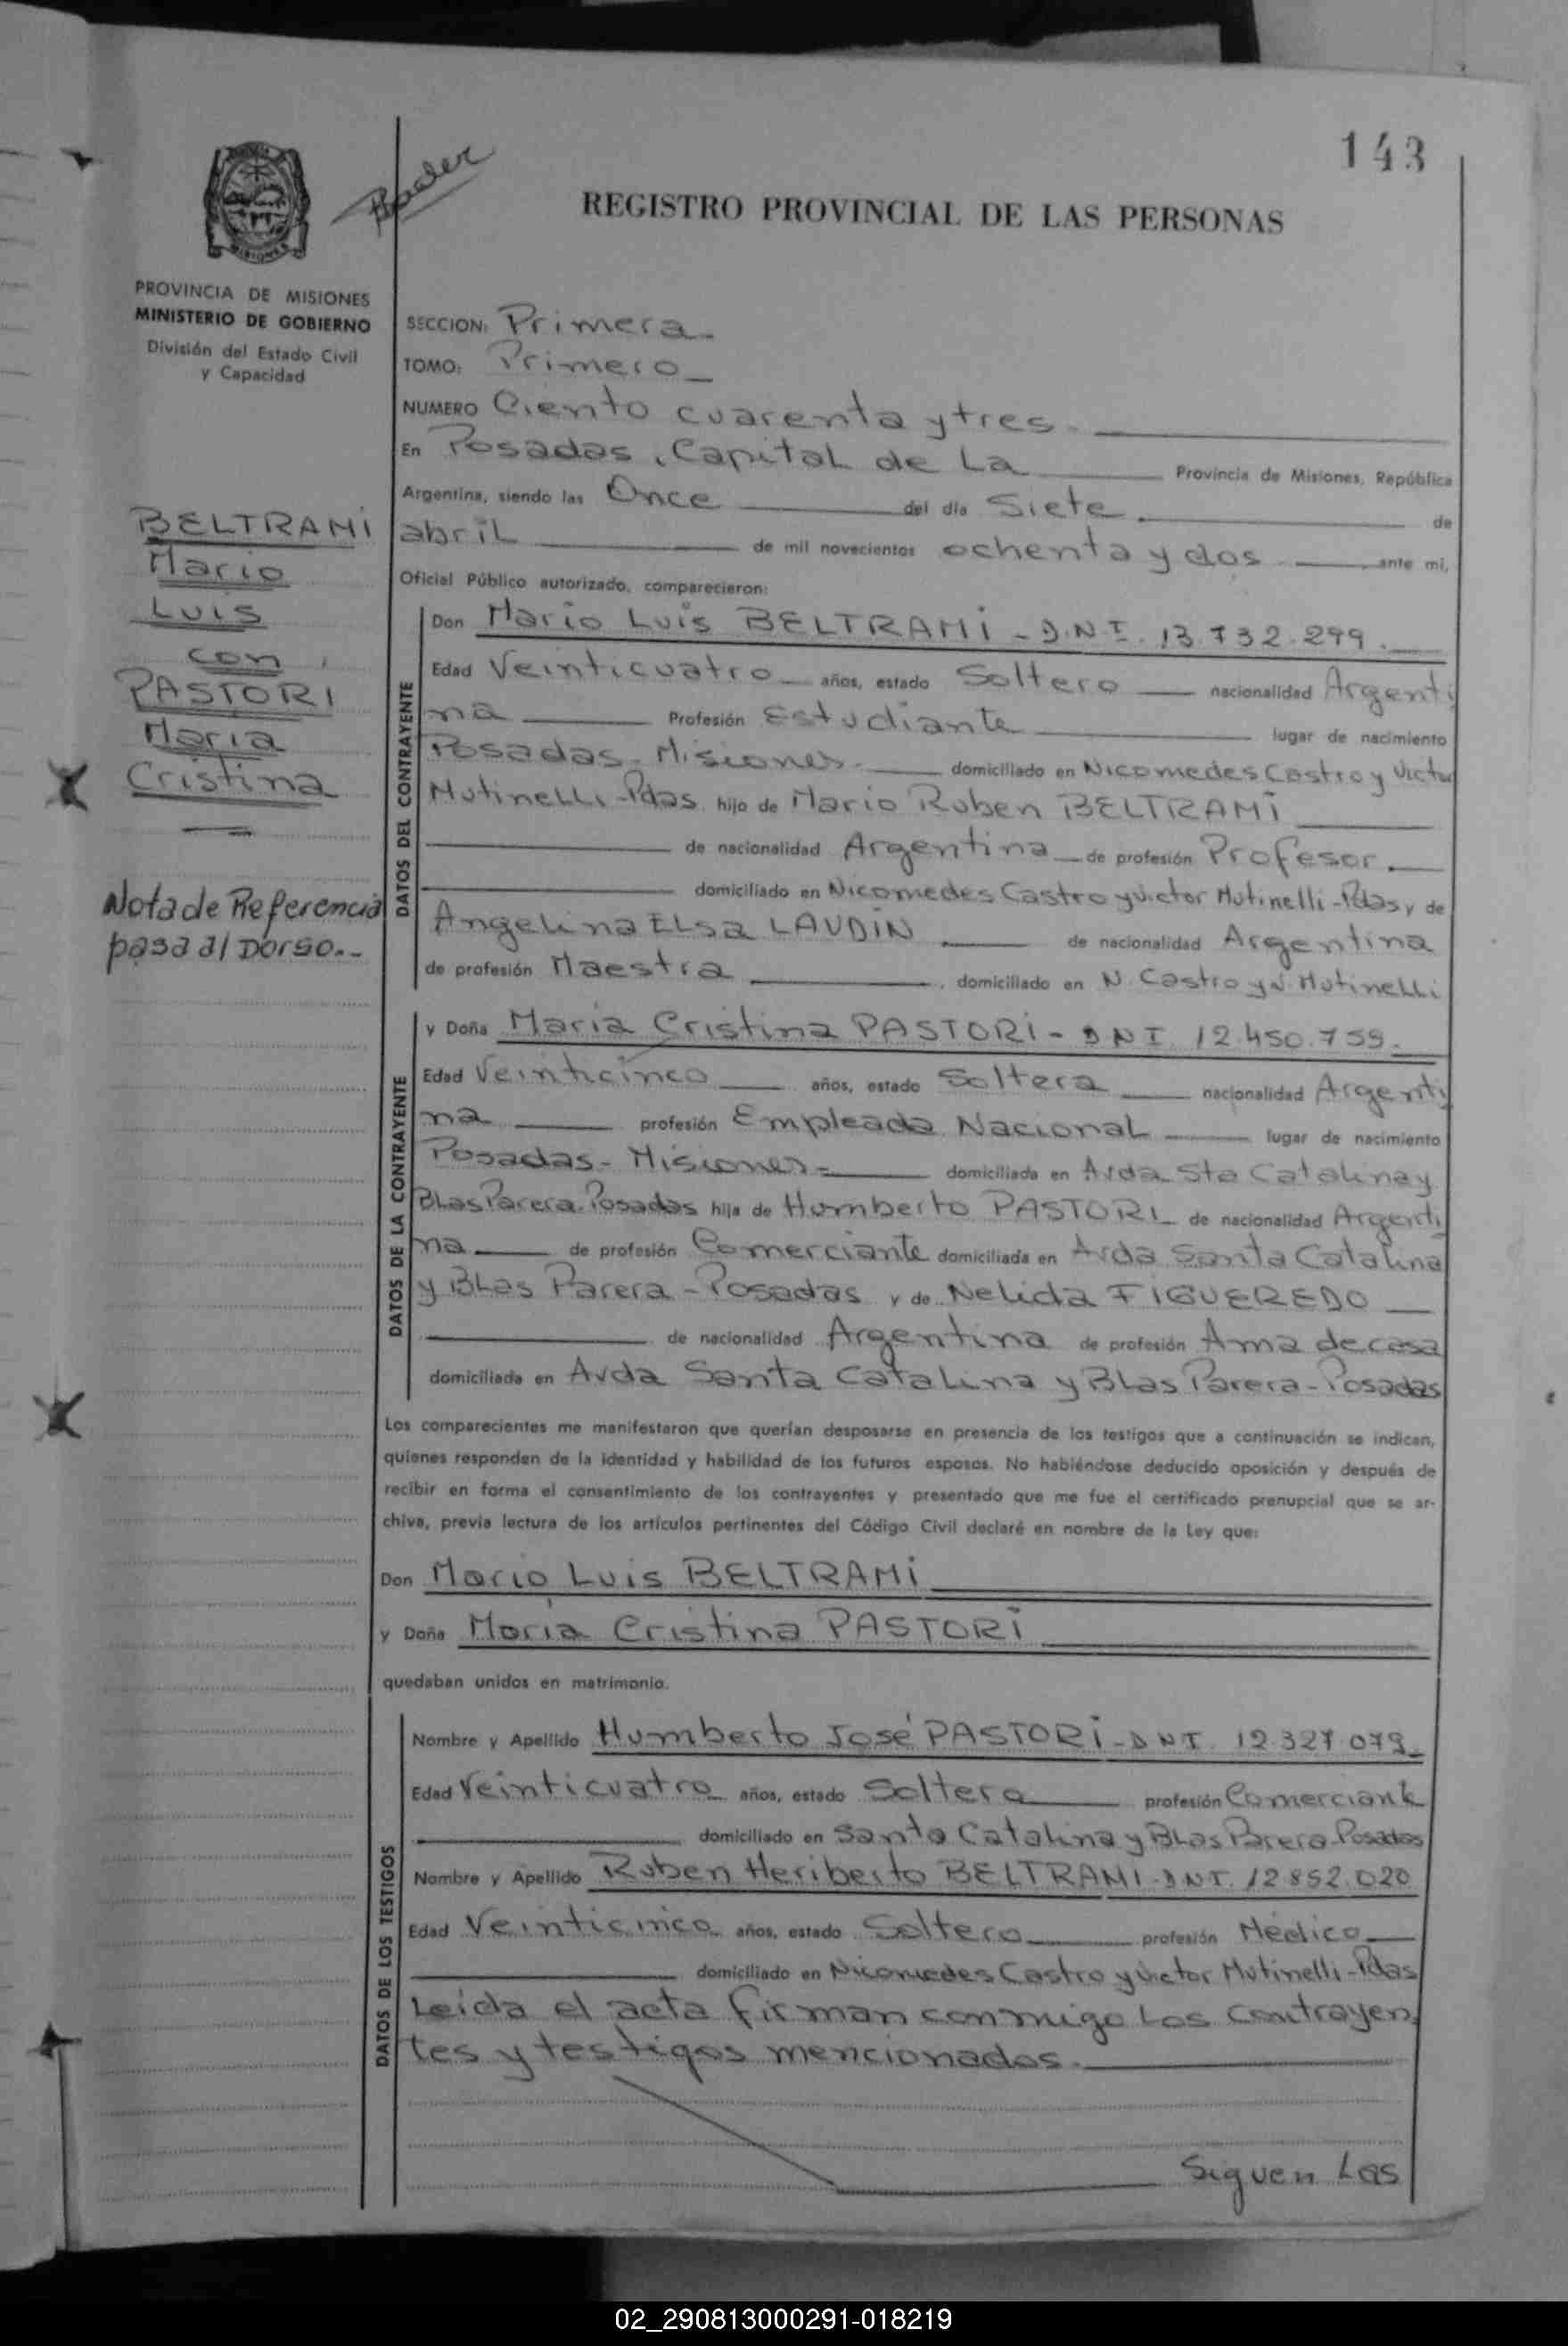 143
REGISTRO PROVINCIAL DE LAS PERSONAS
MISIONES
PROVINCIA DE MISIONES
MINISTERIO DE GOBIERNO
División del Estado Civil
y Capacidad
SECCION: Primera
TOMO: Primero
NUMERO Ciento cuarenta y tres
En Posadas, Capital de La Provincia de Misiones, República
Argentina, siendo las Once del día Siete de
abril de mil novecientos ochenta y dos ante mi,
Oficial Público autorizado, comparecieron:
BELTRAMI
Mario
Luis
con
PASTORI
María
Cristina
Nota de Referencia
pasa al Dorso.-
DATOS DEL CONTRAYENTE
Don Mario Luis BELTRAMI - D.N.I. 13.732.299.
Edad Veinticuatro años, estado Soltero nacionalidad Argenti
na Profesión Estudiante lugar de nacimiento
Posadas - Misiones - domiciliado en Nicomedes Castro y Victor
Mutinelli - Pdas hijo de Mario Ruben BELTRAMI
de nacionalidad Argentina de profesión Profesor
domiciliado en Nicomedes Castro y Victor Mutinelli - Pdas y de
Angelina Elsa LAUDIN de nacionalidad Argentina
de profesión Maestra, domiciliado en N. Castro y V. Mutinelli
DATOS DE LA CONTRAYENTE
y Doña María Cristina PASTORI - DNI 12.450.759.
Edad Veinticinco años, estado Soltera nacionalidad Argenti
na profesión Empleada Nacional lugar de nacimiento
Posadas - Misiones - domiciliada en Avda Sta Catalina y
Blas Parera - Posadas hija de Humberto PASTORI de nacionalidad Argenti
na de profesión Comerciante domiciliada en Avda Santa Catalina
y Blas Parera - Posadas y de Nelida FIGUEREDO
de nacionalidad Argentina de profesión Ama de casa
domiciliada en Avda Santa Catalina y Blas Parera - Posadas
Los comparecientes me manifestaron que querían desposarse en presencia de los testigos que a continuación se indican,
quienes responden de la identidad y habilidad de los futuros esposos. No habiéndose deducido oposición y después de
recibir en forma el consentimiento de los contrayentes y presentado que me fue el certificado prenupcial que se ar-
chiva, previa lectura de los artículos pertinentes del Código Civil declaré en nombre de la Ley que:
Don Mario Luis BELTRAMI
y Doña María Cristina PASTORI
quedaban unidos en matrimonio.
DATOS DE LOS TESTIGOS
Nombre y Apellido Humberto José PASTORI - DNI. 12.327.079
Edad Veinticuatro años, estado Soltero profesión Comerciante
domiciliado en Santa Catalina y Blas Parera - Posadas
Nombre y Apellido Ruben Heriberto BELTRAMI - DNI. 12.852.020
Edad Veinticinco años, estado Soltero profesión Médico
domiciliado en Nicomedes Castro y Victor Mutinelli - Pdas
Leida el acta firman conmigo los contrayen
tes y testigos mencionados.
Siguen Las
02_290813000291-018219